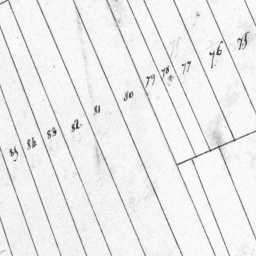 85 84 83 82 81 80 79 78 77 76 75